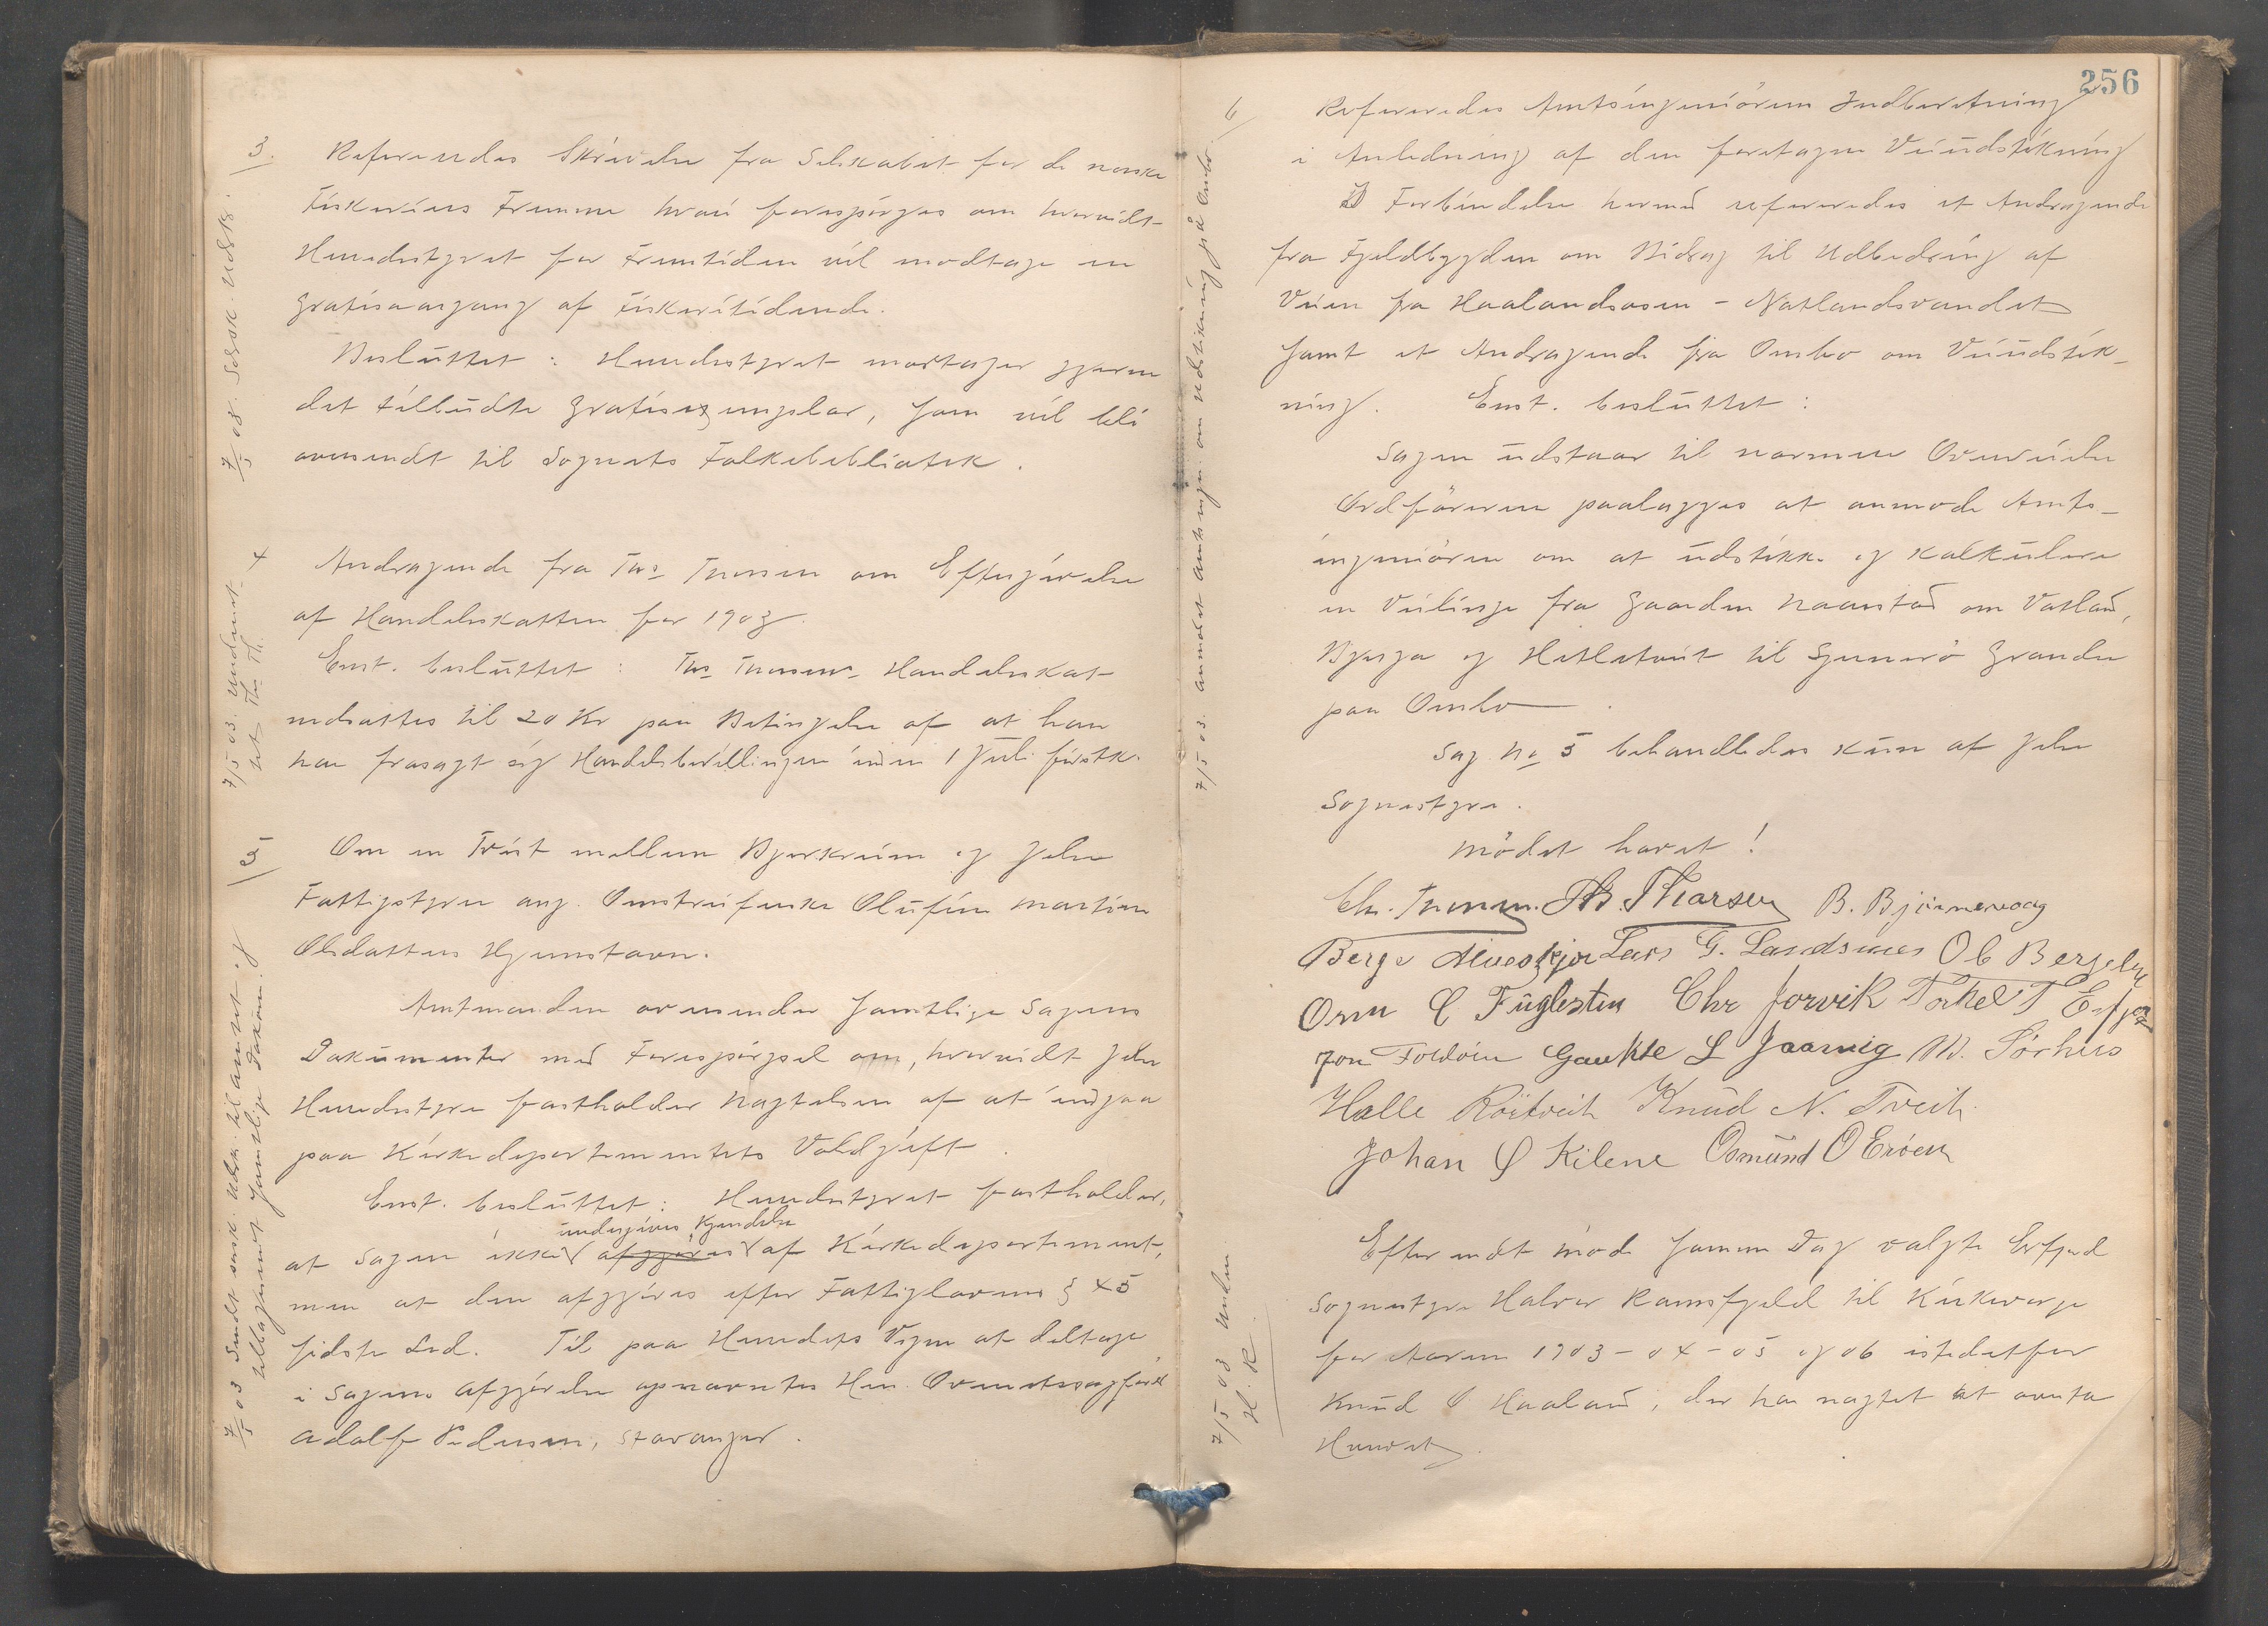 3.
Refereredes Skrivelse fra Selskabet for de norske
Fiskeriers Fremme hvori forespörges om hvorvidt
Herredstyret for Fremtiden vil modtage en
gratisaargang af Fiskeritidende.
Besluttet: Herredstyret mottager gjerne
det tilbudte gratisexemplar, som vil bli
oversendt til Sognets Folkebibliotek.
7/5 03. Særsk. Udskr.
4
Andragende fra Ths Thorsen om Eftergivelse
af Handelsskatten for 1903.
Enst. besluttet: Ths Thorsens Handelsskat
nedsattes til 20 Kr paa Betingelse af at han
har frasagt sig Handelsbevillingen inden 1 Juli förstk.
7/5 03. Underret-
tet Ths Th.
5
Om en Tvist mellem Bjerkreim og Jelse
Fattigstyrer ang. Omstreiferske Olufine Martine
Olsdatters Hjemstavn.
Amtmanden oversender samtlige Sagens
Dokumenter med Forespörgsel om, hvorvidt Jelse
Herredstyre fastholder Nægtelsen af at indgaa
paa Kirkedepartementets Voldgift.
Enst. besluttet: Herredstyret fastholder,
undergives Kjendelse
at Sagen ikke afgjöres af Kirkedepartement,
men at den afgjöres efter Fattiglovens § 45
sidste Led. Til paa Herredets Vegne at deltage
i Sagens Afgjörelse opnævntes Hr. Overretssagförer
Adolf Pedersen, Stavanger.
7/5 03 Sendt særsk. Udsk. til amtet og
vedlagt samtlige Dokum.
256
6
Refereredes Amtsingeniörens Indberetning
i Anledning af den foretagne Veiudstikning
I Forbindelse hermed refereredes et Andragende
fra Fjeldbygden om Bidrag til Udbedring af
Veien fra Haalandsosen - Natlandsvandet
samt et Andragende fra Ombo om Veiudstik-
ning. Enst. besluttet:
Sagen udstaar til nærmere Overveielse
Ordföreren paalægges at anmode Amts-
ingeniören om at udstikke og kalkulere
en Veilinje fra Gaarden Naarstad om Vatland,
Bjerga og Hetletveit til Grænde
paa Ombo.
Sag No 5 behandledes kun af Jelse
Sognestyre.
Mödet hævet!
7/5 03. anmodet amtsingen. om udstikning på Ombo
Chr. Thorsen. Th. Thorsen B. Björnevaag
Berge Lars G. Landsnes Ole Bergelin
Orm C Fuglesten Chr Jorvik Torkel T Erfjord
Jon Foldöin Gautte L Jaarvig M. Sörhus
Halle Röitveit Knud N. Tveit
Johan Ø Kilene Osmund O Eröen
Efter endt möde samme Dag valgte Erfjord
Sognestyre Halvor Ramsfjeld til Kirkeverge
for Aarene 1903-04-05 og 06 istedetfor
Knud O Haaland, der har nægtet at overta
Hvervet.
7/5 03 Underr.
H. R.